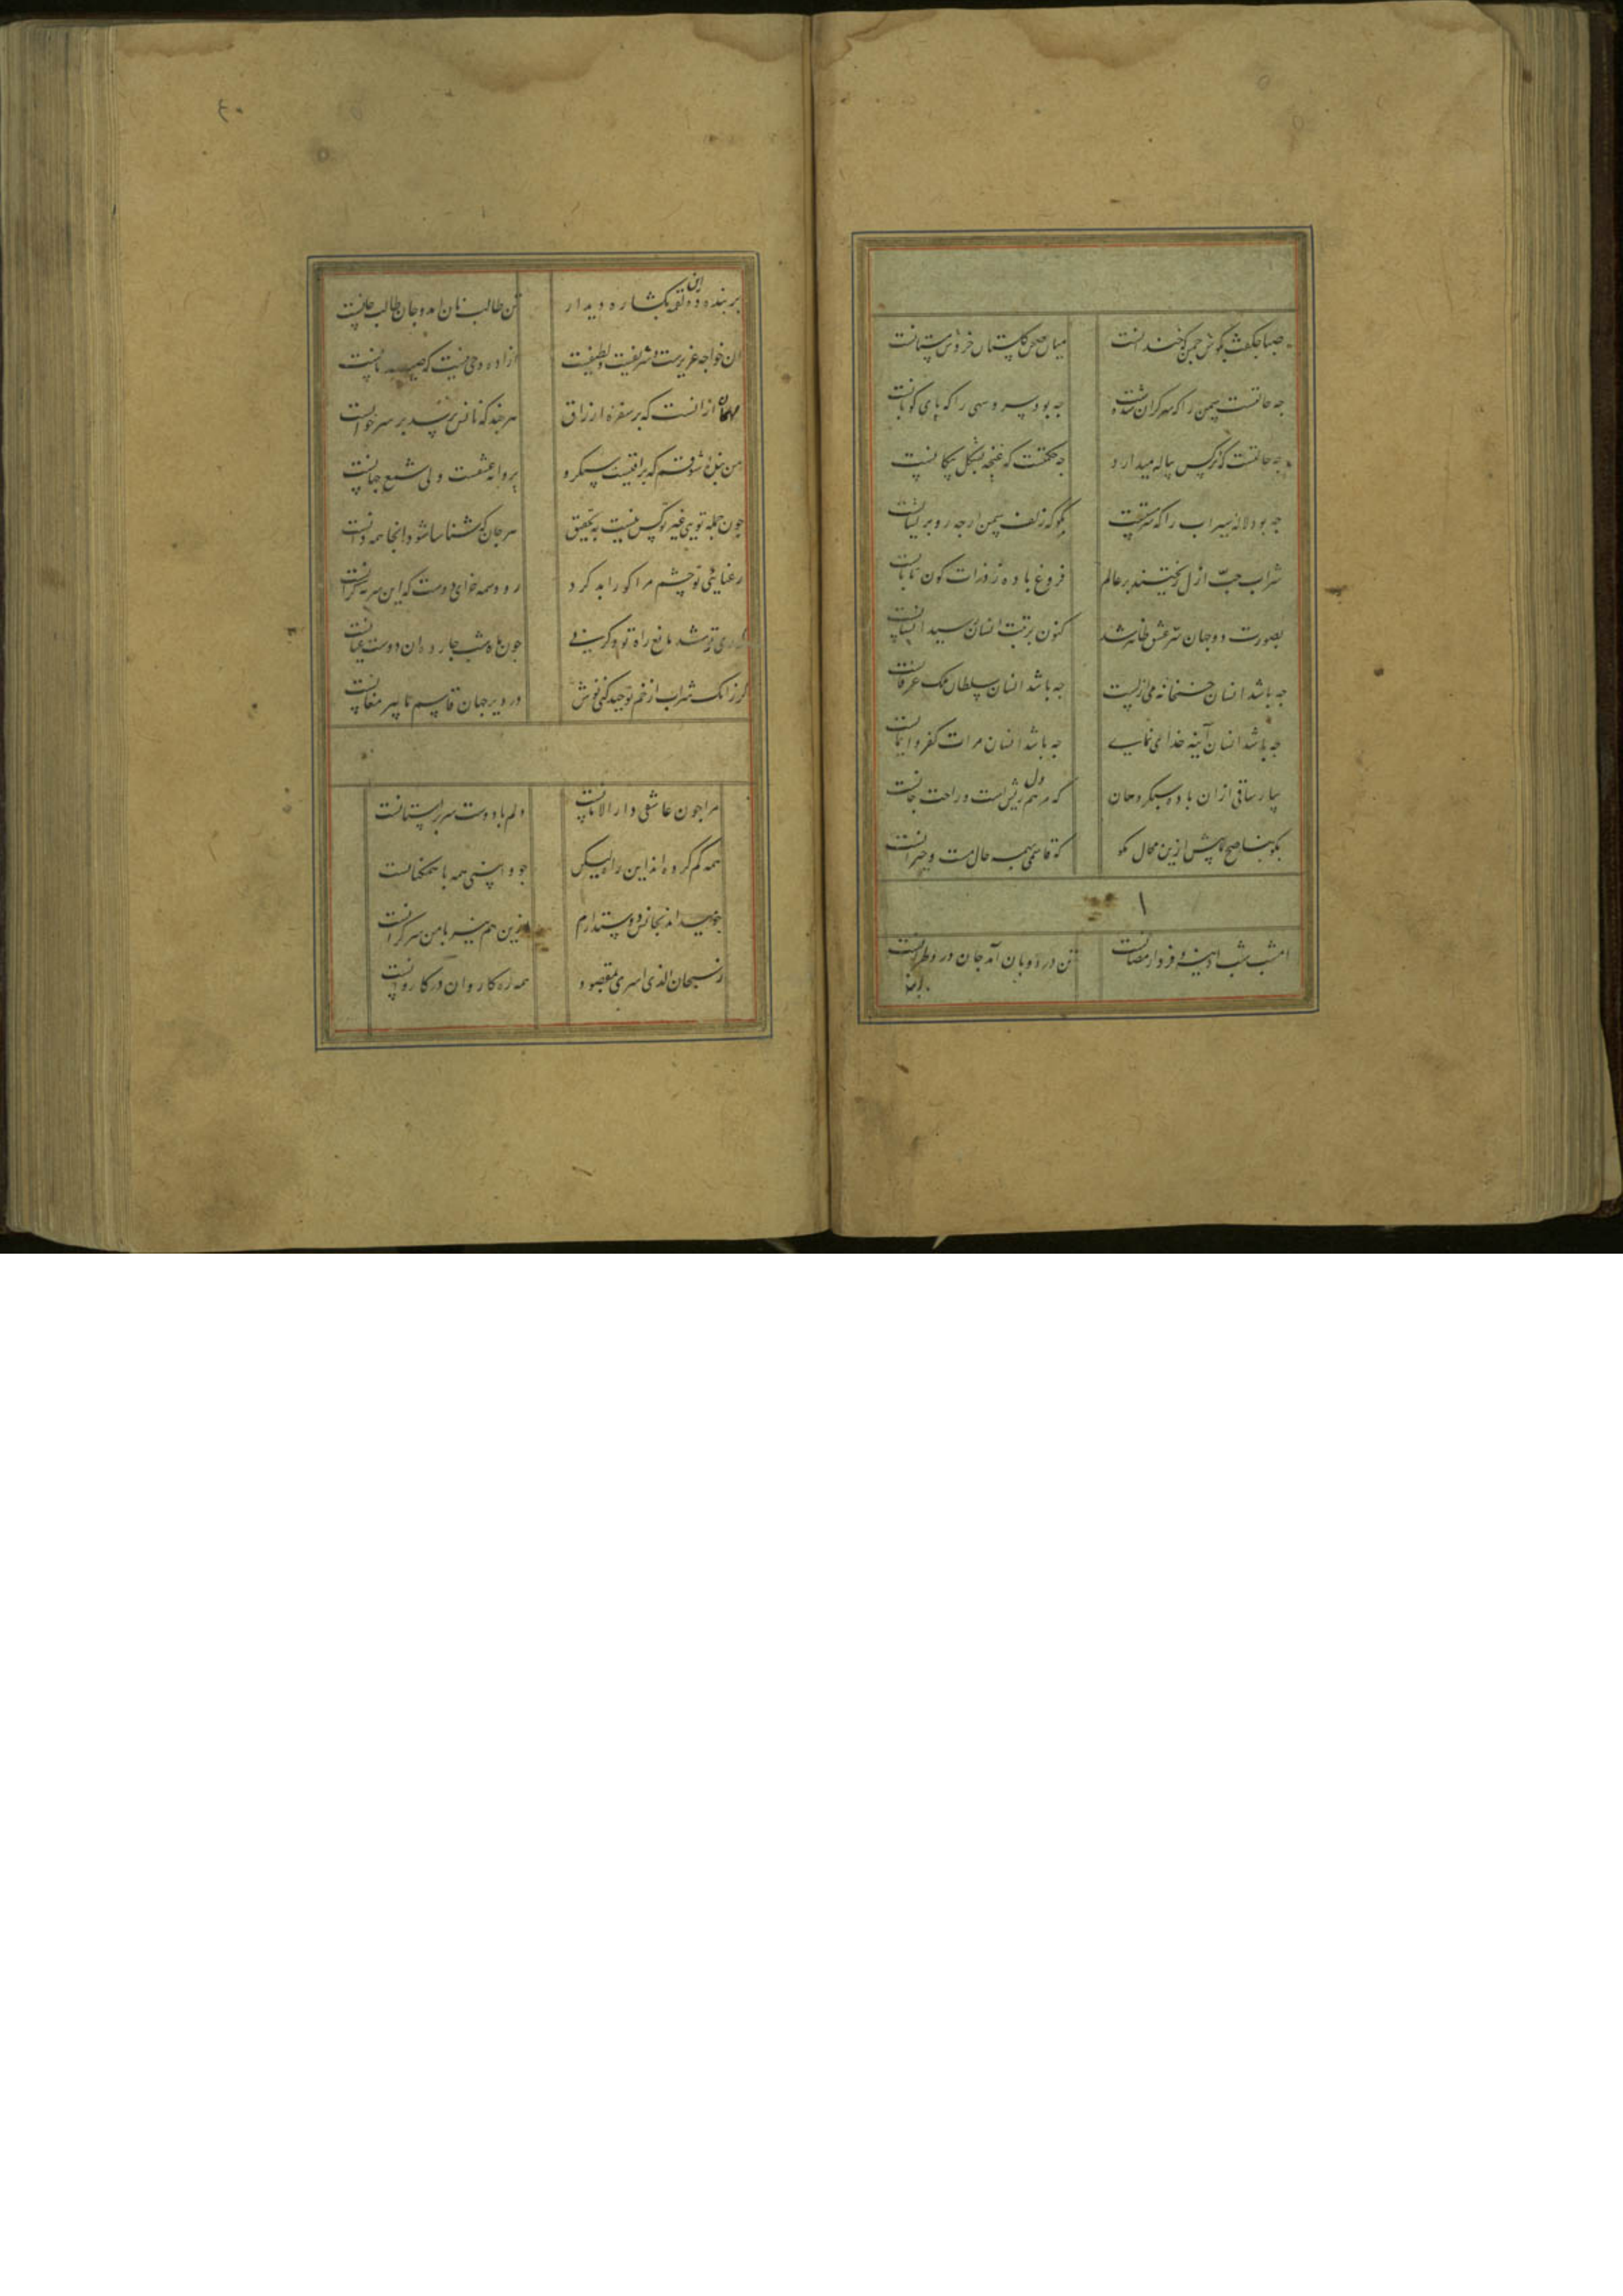 صبا چکفت بگوش چمن که خندانست میان صحن گلستان خروش مستانست
چه حالتست سمن را که سرگران شده چه بود سرو سهی را که پای کوبانست
چه حالتست که نرگس پیاله میدارد چه حکمتست که غنچه بشکل پیکانست
چه بود لاله سیراب را که سرمستست بگو که زلف سمن از چه رو پریشانست
شراب حب ازل ریختند بر عالم فروغ باده ز ذرات کون تابانست
بصورت دو جهان سر عشق ظاهر شد کنون برتبت انسان رسید انسانست
چه باشد انسان خمخانه می ازلیست چه باشد انسان سلطان ملک عرفانست
چه باشد انسان آینه خدای نمای چه باشد انسان مرات کفر و ایمانست
بیار ساقی ازان باده سبکروحان که مرهم دل ریش است و راحت جانست
بگو بناصح ما بیش ازین محال مگو که قاسمی همه حال مست و حیرانست
۱
امشب شب آدینه و فردا رمضانست تن در ذوبان آمد جان در طیرانست
بر بند ده ان لقمه بکشا ره دیدار تن طالب نان آمد و جان طالب جانست
ان خواجه عزیزست و شریفست و لطیفست ازاده و حی نیست که نانست
مهمان ازانست که بر سفره ارزاق هر چند که نانش نرسد بر سر خوانست
من بنده شوقم که براقیست سبکرو پروانه عشقست ولی شمع جهانست
چون جمله تویی غیر تو کس نیست به تحقیق هر جان که شناسا شود انجا همه دانست
رعنایئ تو چشم مرا کور ابد کرد رو وسمه خای دوست که این سرمه گرانست
کوری تو شد مانع راه تو و گرنی چون ماه شب چارده ان دوست عیانست
گر زانک شراب از خم توحید کنی نوش در دیر جهان قاسم ما پیر مغانست
مرا چون عاشقی دار الامانست دلم با دوست سر بر استانست
همه گم کرده اند این راه لیکن چو وا بینی همه با همکنانست
جوید از نجاتش دوستدارم ازین هم نیز با من سر گرانست
ز سبحان الذی اسری بمقصود همه ره کاروان در کاروانست